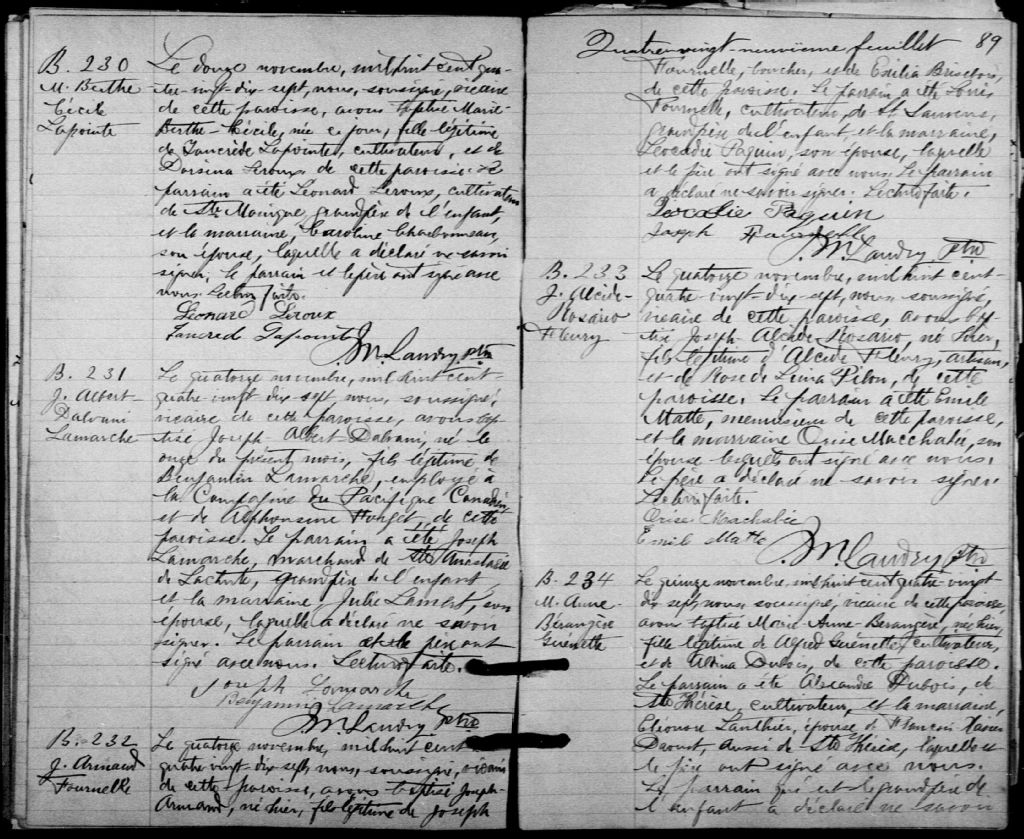 B. 230
M. Berthe
Cécile
Lapointe
Le douze novembre, mil huit cent qua-
tre-vingt-dix-sept, nous, soussigné, vicaire
de cette paroisse, avons baptisé Marie
Berthe-Cécile, née ce jour, fille légitime
de Tancrède Lapointe, cultivateur, et de
Dorsina Leroux de cette paroisse. Le
parrain a été Léonard Leroux, cultivateur
de Ste Monique, grandpère de l'enfant,
et la marraine, Caroline Charbonneau,
son épouse, laquelle a déclaré ne savoir
signer, le parrain et le père ont signé avec
nous. Lecture faite.
Léonard Leroux
Tancred Lapointe
J. M. Landry ptre
B. 231
J. Albert-
Dalvani
Lamarche
Le quatorze novembre, mil huit cent-
quatre vingt dix sept, nous, soussigné,
vicaire de cette paroisse, avons bap-
tisé Joseph-Albert-Dalvani, né le
onze du présent mois, fils légitime de
Benjamin Lamarche, employé à
la Compagnie du Pacifique Canadien
et de Alphonsine Forget, de cette
paroisse. Le parrain a été Joseph
Lamarche, marchand de Ste Anastasie
de Lachute, grandpère de l'enfant
et la marraine, Julie Lambert, son
épouse, laquelle a déclaré ne savoir
signer. Le parrain et le père ont
signé avec nous. Lecture faite.
Joseph Lamarche
Benjamin Lamarche
J. M. Landry ptre
B. 232
J. Armand
Fournelle
Le quatorze novembre, mil huit cent
quatre vingt-dix sept, nous, soussigné, vicaire
de cette paroisse, avons baptisé Joseph-
Armand, né hier, fils légitime de Joseph
Quatre-vingt-neuvième feuillet 89
Fournelle, boucher, et de Emilia Brisebois,
de cette paroisse. Le parrain a été Louis
Fournelle, cultivateur, de St Laurent,
grandpère de l'enfant, et la marraine,
Léocadie Paquin, son épouse, laquelle
et le père ont signé avec nous. Le parrain
a déclaré ne savoir signer. Lecture faite.
Locadie Paquin
Joseph Fournelle
J. M. Landry ptre
B. 233
J. Alcide-
Rosario
Fleury
Le quatorze novembre, mil huit cent-
quatre vingt-dix-sept, nous, soussigné,
vicaire de cette paroisse, avons bap-
tisé Joseph Alcide Rosario, né hier,
fils légitime d'Alcide Fleury, artisan,
et de Rose de Lima Pilon, de cette
paroisse. Le parrain a été Emile
Matte, menuisier de cette paroisse,
et la marraine Orise Macchabée, son
épouse lesquels ont signé avec nous.
Le père a déclaré ne savoir signer.
Lecture faite.
Orise Machabée
Emile Matte
J. M. Landry ptre
B. 234
M. Anne-
Bérangère
Guénette
Le quinze novembre, mil huit cent quatre vingt
dix sept, nous, soussigné, vicaire de cette paroisse,
avons baptisé Marie-Anne-Bérangère, née hier,
fille légitime de Alfred Guénette, cultivateur,
et de Albina Dubois, de cette paroisse.
Le parrain a été Alexandre Dubois, de
Ste Thérèse, cultivateur, et la marraine,
Eléonore Lauthier, épouse de François Xavier
Daoust, aussi de Ste Thérèse, laquelle et
le père ont signé avec nous.
Le parrain qui est le grandpère de
l'enfant a déclaré ne savoir